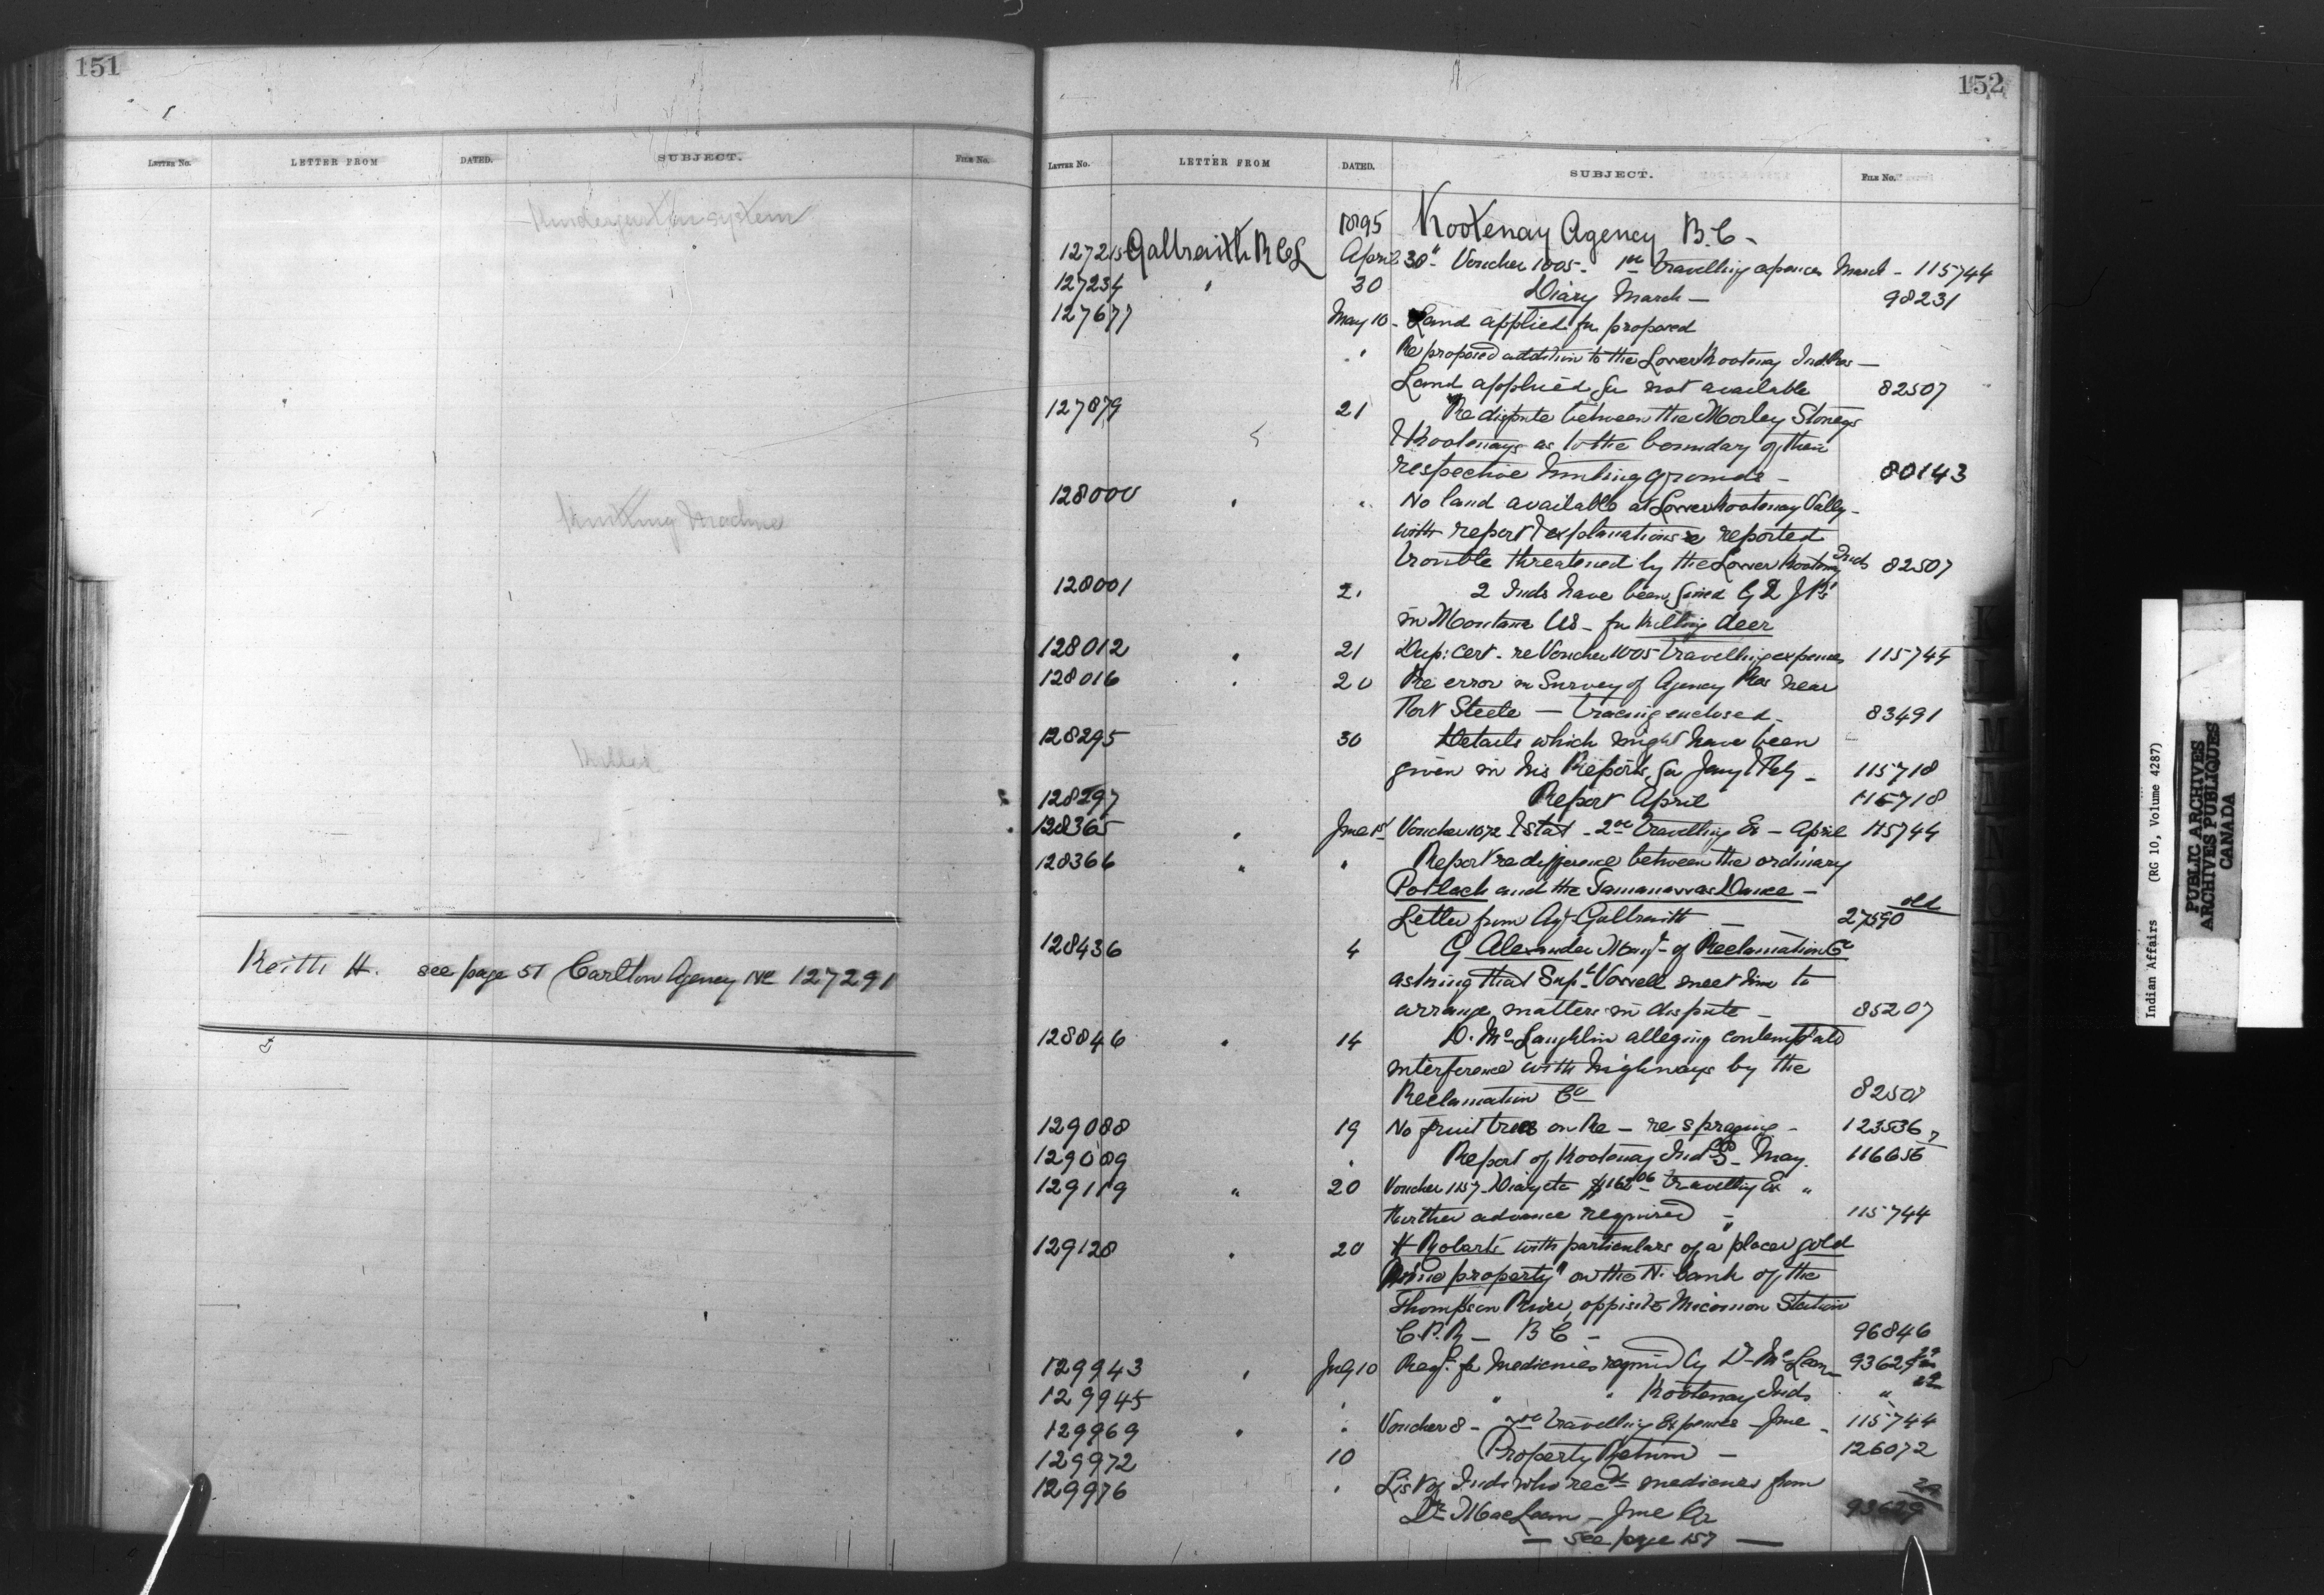 151
LETTER No. LETTER FROM DATED. SUBJECT. FILE No.
Kindergarten system
Knitting Machine
Killed
Keith H. see page 51 Carlton Agency re 127291
152
LETTER No. LETTER FROM DATED. SUBJECT. FILE No.
1895 Kootenay Agency B.C -
127215 Galbraith R C L April 30" Voucher 1005 - travelling expences March - 115744
127234 " 30 Diary March - 98231
127677 May 10 - Land applied for proposed
" Re proposed addition to the Lower Kootenay Ind. Res -
Land applied for not available 82507
127879 21 Re dispute between the Morley Stoneys
& Kootenays as to the boundary of their
respective hunting grounds - 80143
128000 " " No land available at Lower Kootenay Vally -
with report & explanations re reported
trouble threatened by the Lower Kootenay Inds 82507
128001 21 2 Inds have been fined by 2 J.P.s
in Montana US - for killing deer
128012 " 21 Dup: cert. re Voucher 1005 travelling expences 115744
128016 " 20 Re error in Survey of Agency Res near
Fort Steele - tracing enclosed - 83491
128295 30 Details which might have been
given in his Reports for Jany & Feby - 115718
128297 Report April 115718
128365 " June 1st Voucher 1072 & Stat - travelling Ex - April 115744
128366 " " Report re difference between the ordinary
Potlach and the Tamanawas Dance -
Letter from Agt Galbraith - 27590 old
128436 4 G Alexander Mangr of Reclamation Co
asking that Supt Vowell meet him to
arrange matters in dispute - 85207
128846 " 14 D. McLaughlin alleging contemptatd
interference with highways by the
Reclamation Co 82508
129088 19 No fruit trees on Re - re spraying - 123536
129089 " Report of Kootenay Ind. - May. 116656
129119 " 20 Voucher 1157 - Diary etc $162.06 - travelling Ex "
Further advance required - " 115744
129128 " 20 H Robarts with particulars of a "placer gold
Mine property" on the N. bank of the
Thompson River, opposite Station
C.P.R - B C - 96846
129943 " July 10 Reqt. for Medicines required by Dr McLean 93629
129945 " " " Kootenay Inds "
129969 " " Voucher 8 - travelling Expences - June - 115744
129972 10 Property Return - 126072
129976 " List of Inds who recd medicines from
Dr MacLean - June Qr 93629
- see page 157 -
Indian Affairs (RG 10, Volume 4287)
PUBLIC ARCHIVES
ARCHIVES PUBLIQUES
CANADA